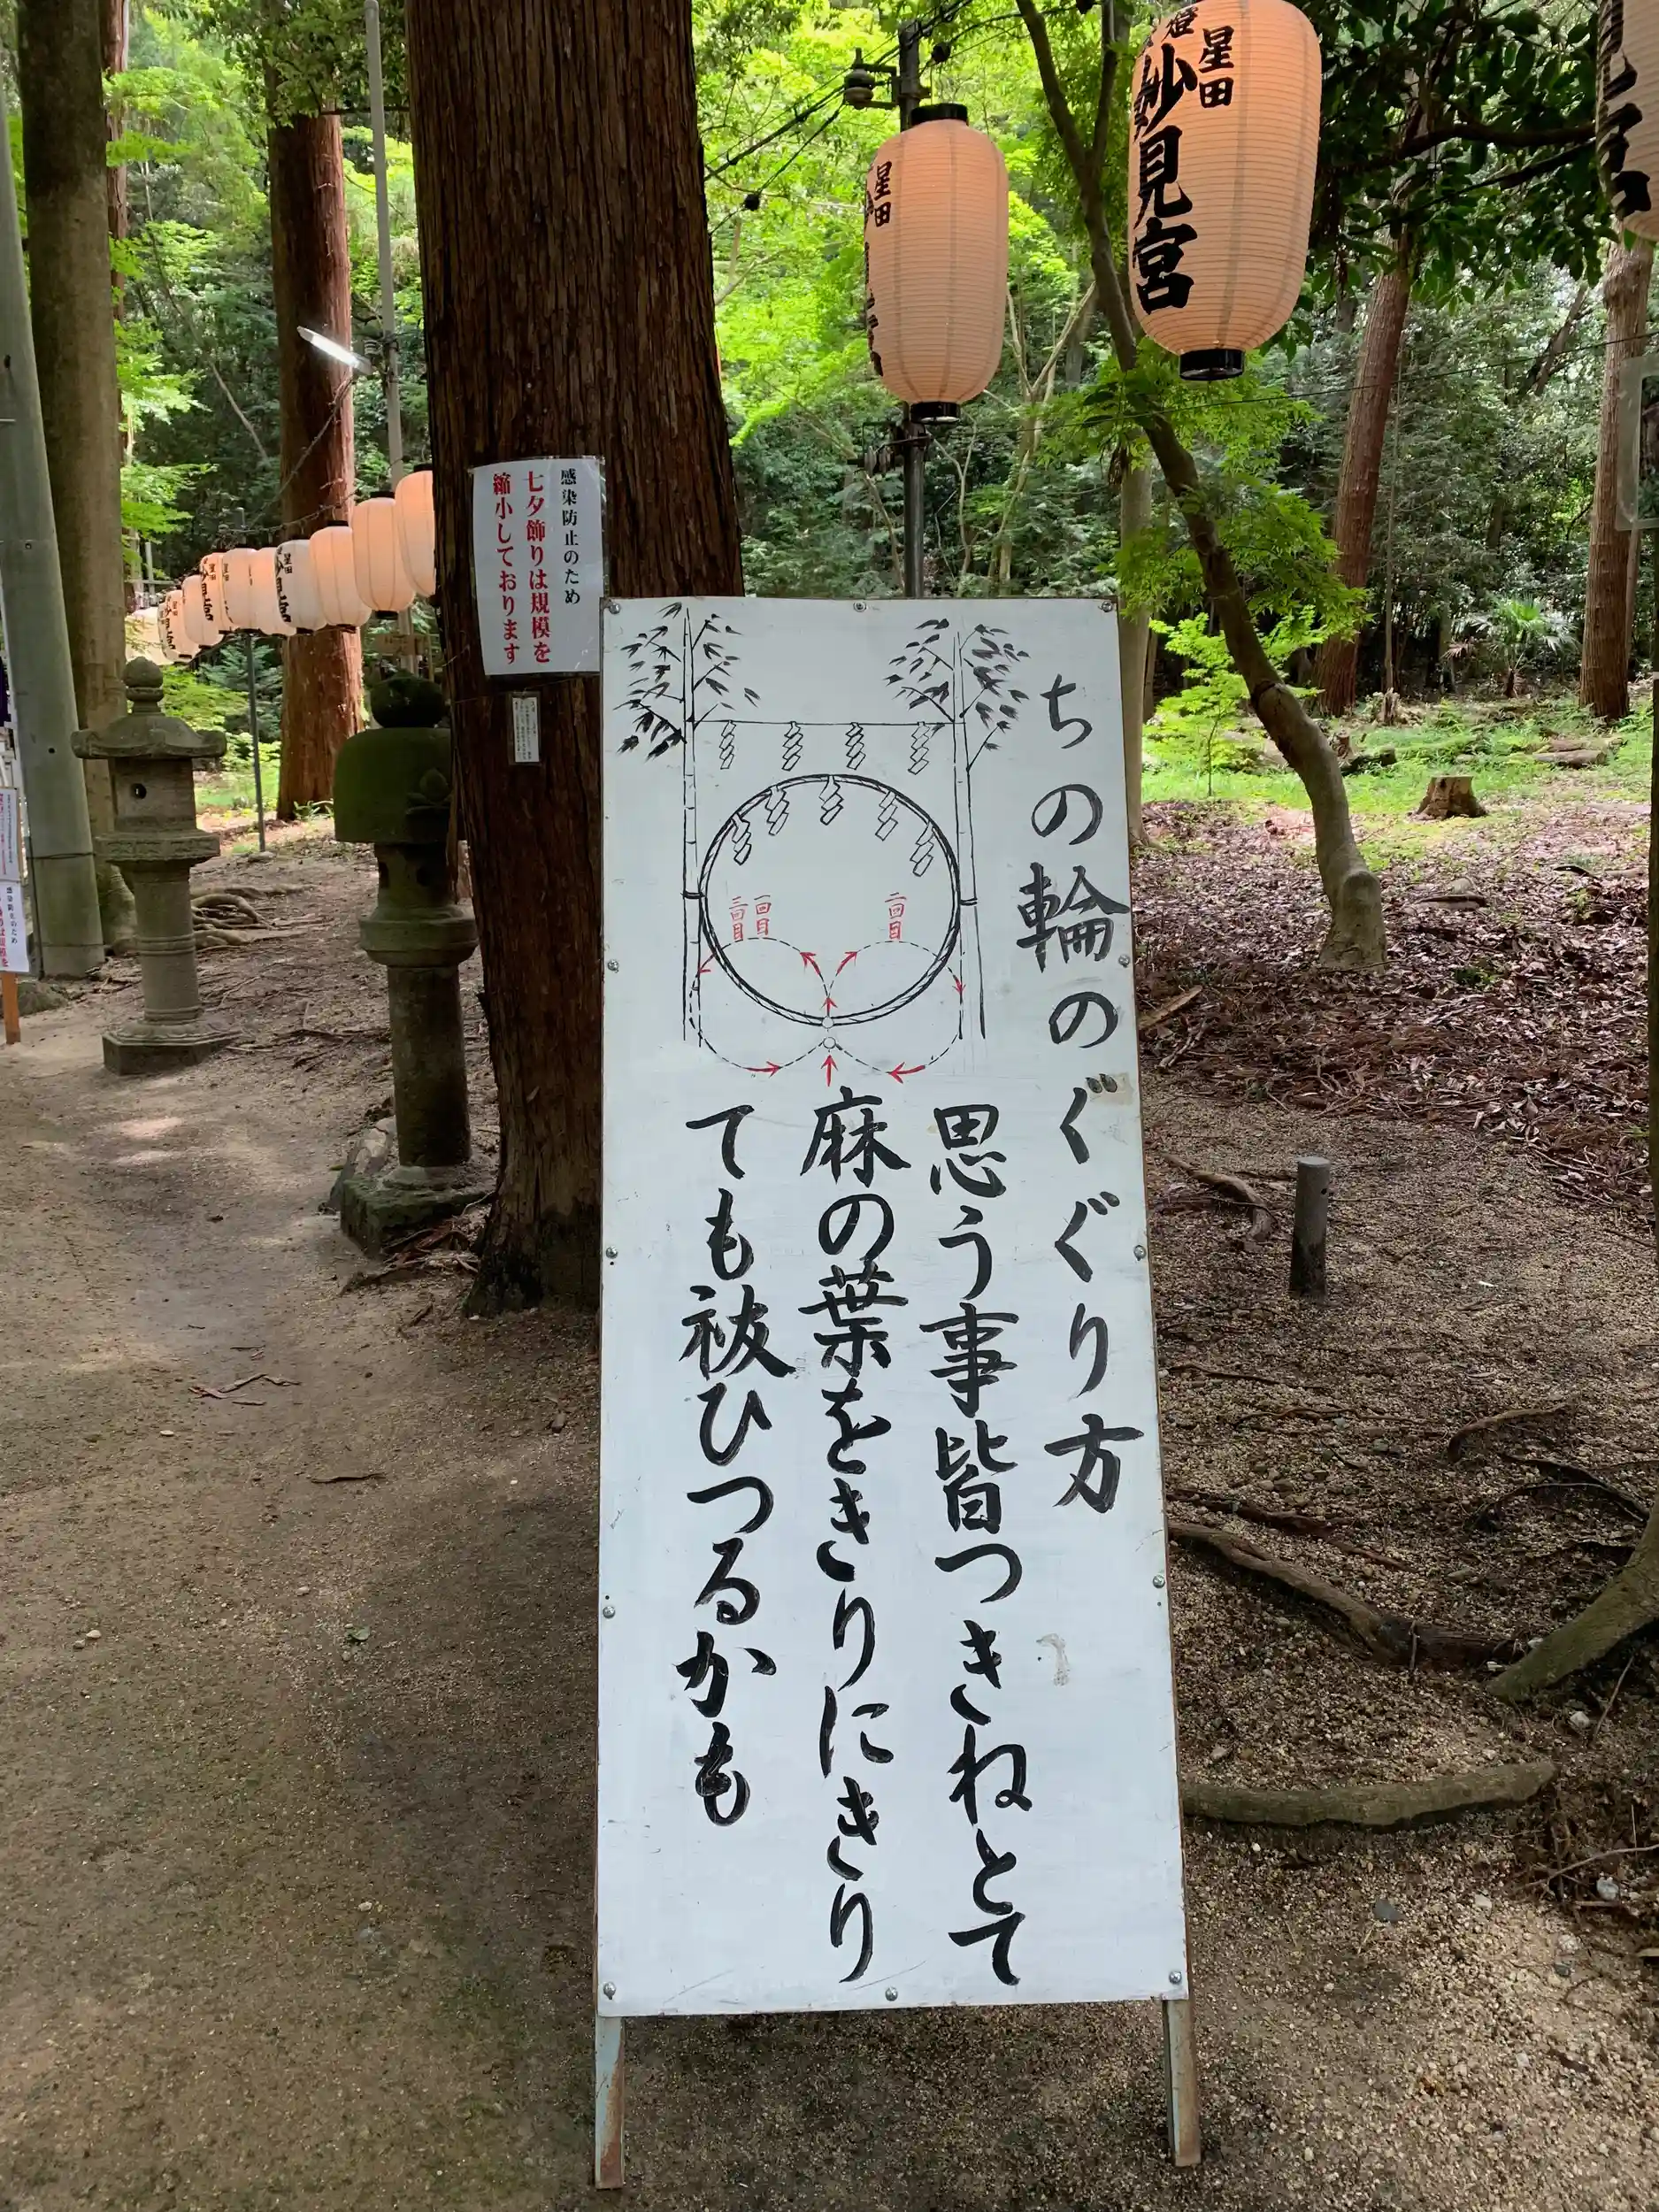 ちの輪のぐぐり方
思う事皆つきねとて
麻の葉をきりにきり
ても祓ひつるかも
一回目
二回目
三回目
感染防止のため
七夕飾りは規模を
縮小しております
星田
妙見宮
星田